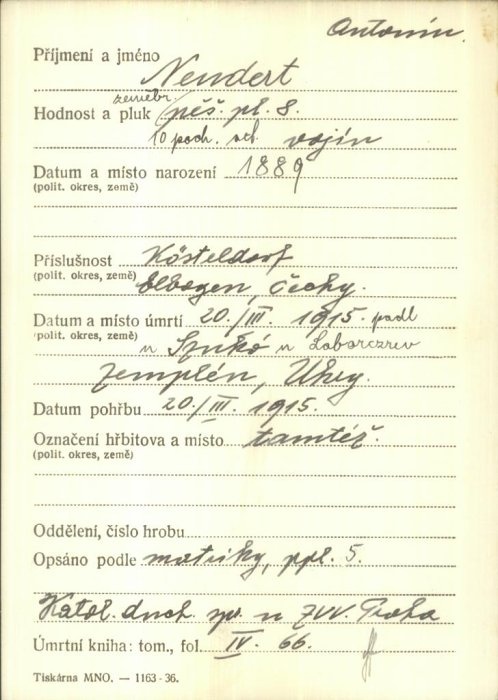 Antonín.
Příjmení a jméno Neudert
zeměbr.
Hodnost a pluk pěš. pl. 8.
10 poch. vojín
Datum a místo narození 1889
(polit. okres, země)
Příslušnost Kösteldorf
(polit. okres, země) Elbogen, Čechy.
Datum a místo úmrtí 20./III. 1915. padl
(polit. okres, země) u Szukó u Laborczrév
Zemplén, Uhry.
Datum pohřbu 20./III. 1915.
Označení hřbitova a místo tamtéž.
(polit. okres, země)
Oddělení, číslo hrobu
Opsáno podle matriky, ppl. 5.
Katol. duch. sp. u ZVV. Praha
Úmrtní kniha: tom., fol. IV. 66.
Tiskárna MNO. — 1163-36.